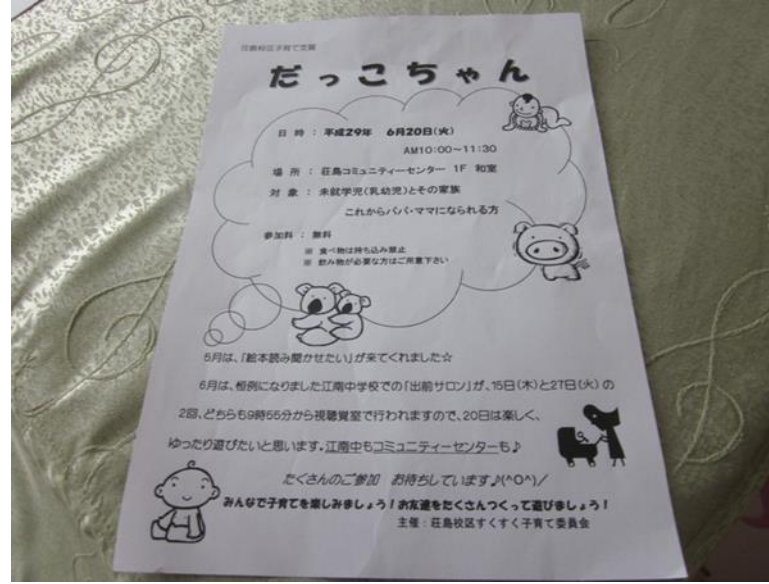 荘島校区子育て支援
だっこちゃん
日 時 : 平成29年 6月20日(火)
AM10:00~11:30
場 所 : 荘島コミュニティーセンター 1F 和室
対 象 : 未就学児(乳幼児)とその家族
これからパパ・ママになられる方
参加料 : 無料
※ 食べ物は持ち込み禁止
※ 飲み物が必要な方はご用意下さい
5月は、「絵本読み聞かせたい」が来てくれました☆
6月は、恒例になりました江南中学校での「出前サロン」が、15日(木)と27日(火)の
2回、どちらも9時55分から視聴覚室で行われますので、20日は楽しく、
ゆったり遊びたいと思います。江南中もコミュニティーセンターも♪
たくさんのご参加 お待ちしています♪(^O^)/
みんなで子育てを楽しみましょう!お友達をたくさんつくって遊びましょう!
主催:荘島校区すくすく子育て委員会